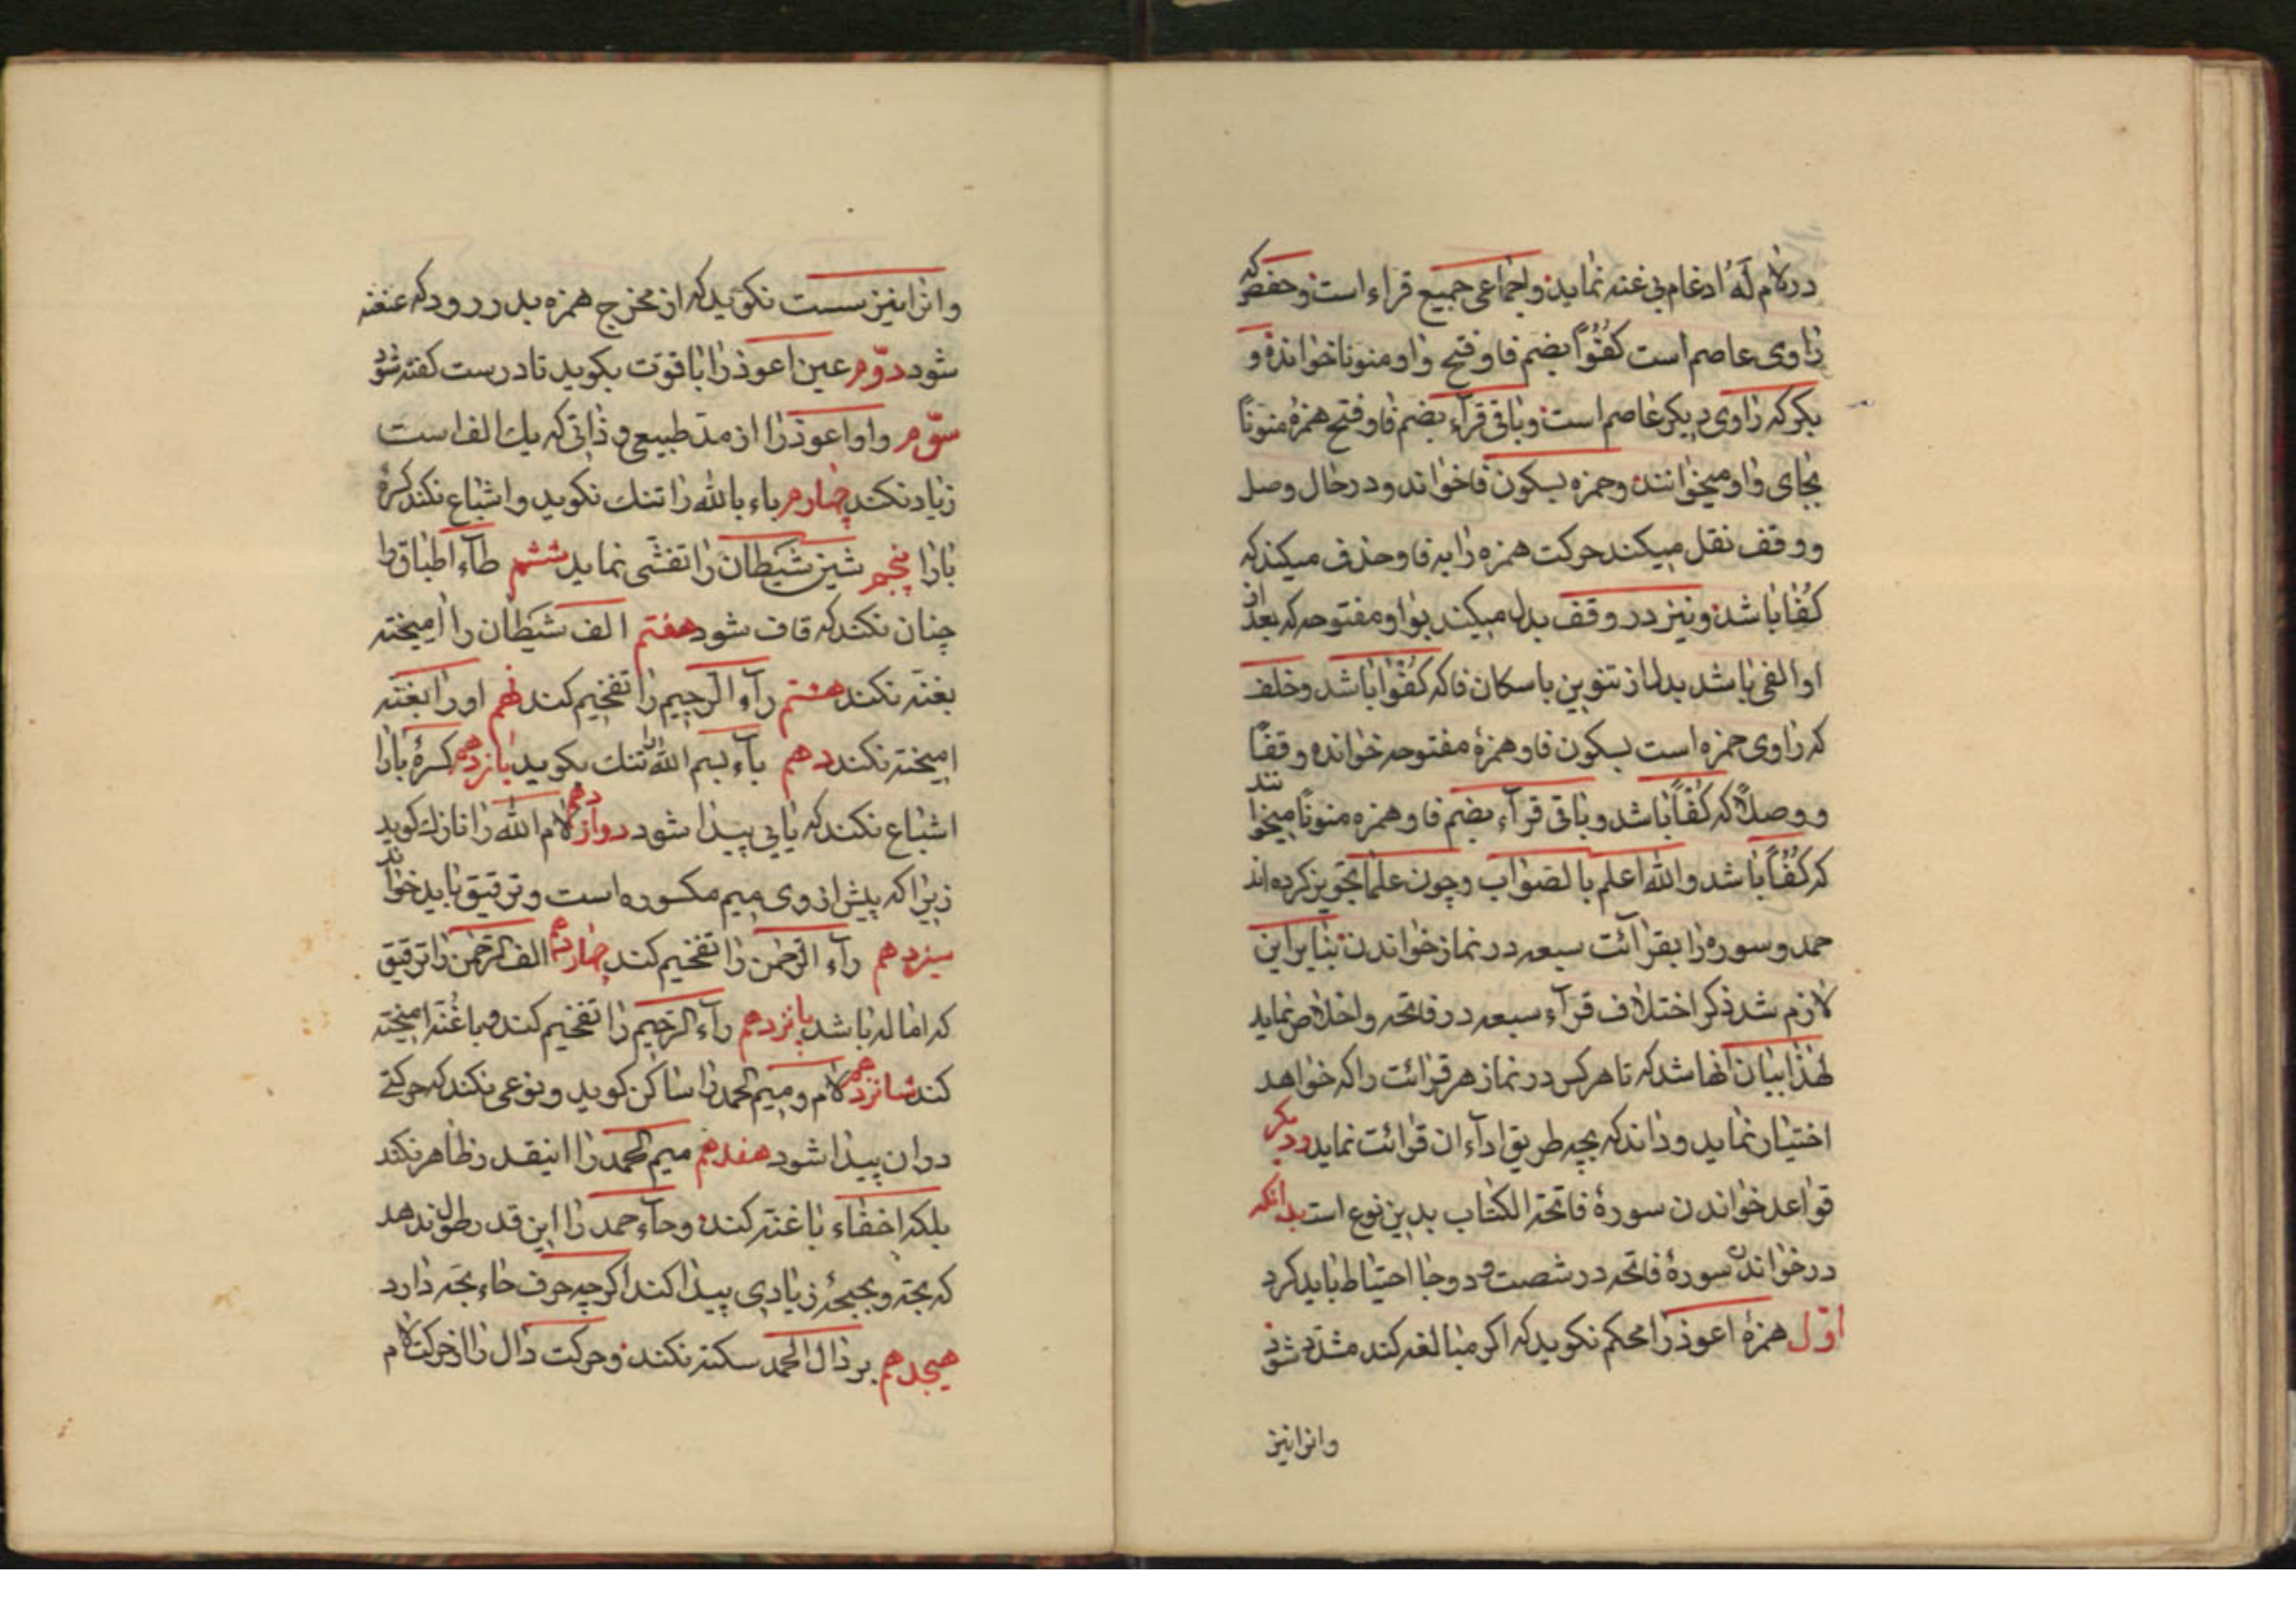 در لام لَهُ ادغام بی غنه نماید و اجماعی جمیع قراء است و حفص که
راوی عاصم است کُفُوًا بضم فا و فتح واو منونا خوانده و
بکر که راوی دیکر عاصم است و باقی قرآء بضم فا و فتح همزهٔ منونًا
بجای واو میخوانند و حمزه بسکون فا خواند و در حال وصل
و وقف نقل میکند حرکت همزه را به فا و حذف میکند که
کُفًا باشد و نیز در وقف بدل میکند بواو مفتوحه که بعد از
او الفی باشد بدل از تنوین با سکان فا که کُفْوا باشد و خلف
که راوی حمزه است بسکون فا و همزهٔ مفتوحه خوانده وقفًا
و وصلاً که کُفْاً باشد و باقی قرآء بضم فا و همزه منونًا میخوانند
که کُفُاً باشد والله اعلم بالصواب و چون علما تجویز کرده اند
حمد و سوره را بقرائت سبعه در نماز خواندن بنابراین
لازم شد ذکر اختلاف قرآء سبعه در فاتحه و اخلاص نماید
لهذا بیان انها شد که تا هر کس در نماز هر قرائت را که خواهد
اختیار نماید و داند که بچه طریق ادآء ان قرائت نماید و دیکر
قواعد خواندن سورهٔ فاتحة الکتاب بدین نوع است بدانکه
در خواندن سورهٔ فاتحه در شصت و دو جا احتیاط باید کرد
اوّل همزهٔ اعوذ را محکم نکوید که اکر مبالغه کند مشدّد شود
وانرا نیز
وانرا نیز سست نکوید که از مخرج همزه بدر رود که عنعنه
شود دوّم عین اعوذ را با قوّت بکوید تا درست کفته شود
سوّم واو اعوذ را از مدّ طبیعی و ذاتی که یك الف است
زیاد نکند چهارم باء بالله را تنك نکوید و اشباع نکند کسرهٔ
بارا پنجم شین شیطان را تفشّی نماید ششم طآء اطباق را
چنان نکند که قاف شود هفتم الف شیطان را امیخته
بغنّه نکند هشتم رآء الرّجیم را تفخیم کند نهم او را بغنّه
امیخته نکند دهم بآء بسم الله را تنك بکوید یازدهم کسرهٔ بارا
اشباع نکند که یایی پیدا شود دوازدهم لام الله را نازك کوید
زیرا که پیش از وی میم مکسوره است و ترقیق باید خواند
سیزدهم رآء الرّحمن را تفخیم کند چهاردهم الف الرّحمن را ترقیق
که اماله باشد پانزدهم رآء الرّحیم را تفخیم کند و با غُنّه امیخته
کند شانزدهم لام و میم الحمد را ساکن کوید و نوعی نکند که حرکتی
در ان پیدا شود هفدهم میم الحمد را انیقدر ظاهر نکند
بلکه اخفاء با غنّه کند و حآء حمد را این قدر طول ندهد
که بحّه و بحبحهٔ زیادی پیدا کند اکرچه حرف حاء بحّه دارد
هیجدهم بر دال الحمد سکته نکند و حرکت دال را از حرکت لام